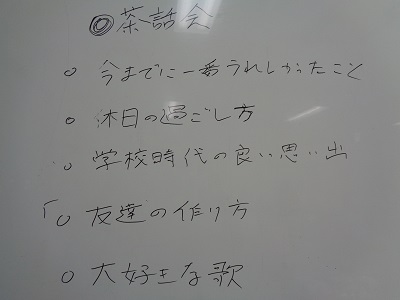 ◎茶話会
○ 今までに一番うれしかったこと
○ 休日の過ごし方
○ 学校時代の良い思い出
「○ 友達の作り方
○ 大好きな歌